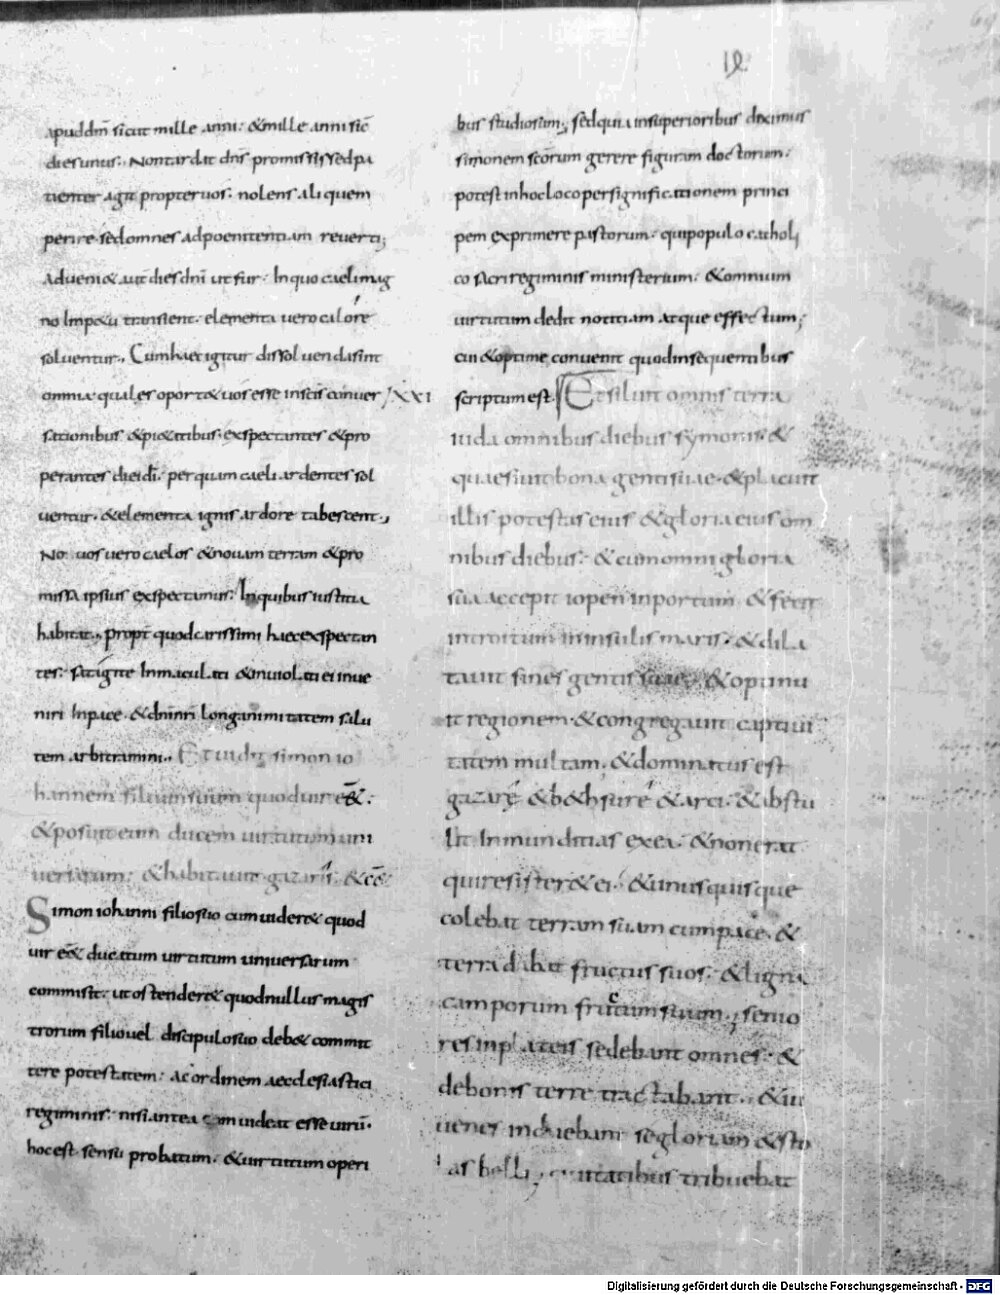 apuddm̄ sicut mille anni: & mille anni sic
dies unus. Non tardat dn̄s promissis sed pa
tienter agit propter uos. nolens aliquem
perire. sed omnes ad poenitentiam reuerti;
Adueni& aut dies dn̄i ut fur. In quo caeli mag
no Imp&u transient. elementa uero calore
soluentur., Cum haec igitur dissoluenda sint
omnia. quales oport& uos esse in scīs conuer
sationibus & pi&atibus. exspectantes & pro
perantes diei dī. per quam caeli ardentes sol
uentur. & elementa ignis ardore tabescent.,
nouos uero caelos & nouam terram & pro
missa ipsius exspectamus. In quibus iustitia
habitat., propt quod carissimi haec exspectan
tes. satagite Inmaculati & inuiolati ei inue
niri In pace. & dn̄i nrī longanimitatem salu
tem arbitramini.. Et uidit simon io
hannem filium suum quod uir e&:
& posuit eum ducem uirtutum uni
uersarum: & habitauit gazaris. & c̄&.
Simon iohanni filio suo cum uider& quod
uir e& ducatum uirtutum uniuersarum
commisit. ut ostender& quod nullus magis
trorum filio uel discipulo suo deb& commit
tere potestatem: ac ordinem aecclesiastici
regiminis. nisi antea eum uideat esse uirū.
hoc est. sensu probatum. & uirtutum operi
LXXI
bus studiosum; sed quia in superioribus diximus
simonem scōrum gerere figuram doctorum:
potest in hoc loco per significationem princi
pem exprimere pastorum. qui populo catholi
co sacri regiminis ministerium. & omnium
uirtutum dedit notitiam atque effectum;
cui & optime conuenit quod in sequentibus
scriptum est. Et siluit omnis terra
iuda omnibus diebus symonis. &
quaesiuit bona gentis suae. & placuit
illis potestas eius & gloria eius om
nibus diebus. & cum omni gloria
sua accepit iopen in portum. & fecit
introitum in insulis maris. & dila
tauit fines gentis suae. & optinu
it regionem. & congregauit captiui
tatem multam. & dominatus est
gazarę & b&hsurę & arci. & abstu
lit Inmunditias ex ea. & non erat
qui resister& ei. & unusquisque
colebat terram suam cum pace. &
terra dabat fructus suos. & ligna
camporum fructum suum; senio
res in plateis sedebant omnes. &
de bonis terre tractabant. & iu
uenes induebant se gloriam & sto
las belli; ciuitatibus tribuebat
Digitalisierung gefördert durch die Deutsche Forschungsgemeinschaft - DFG